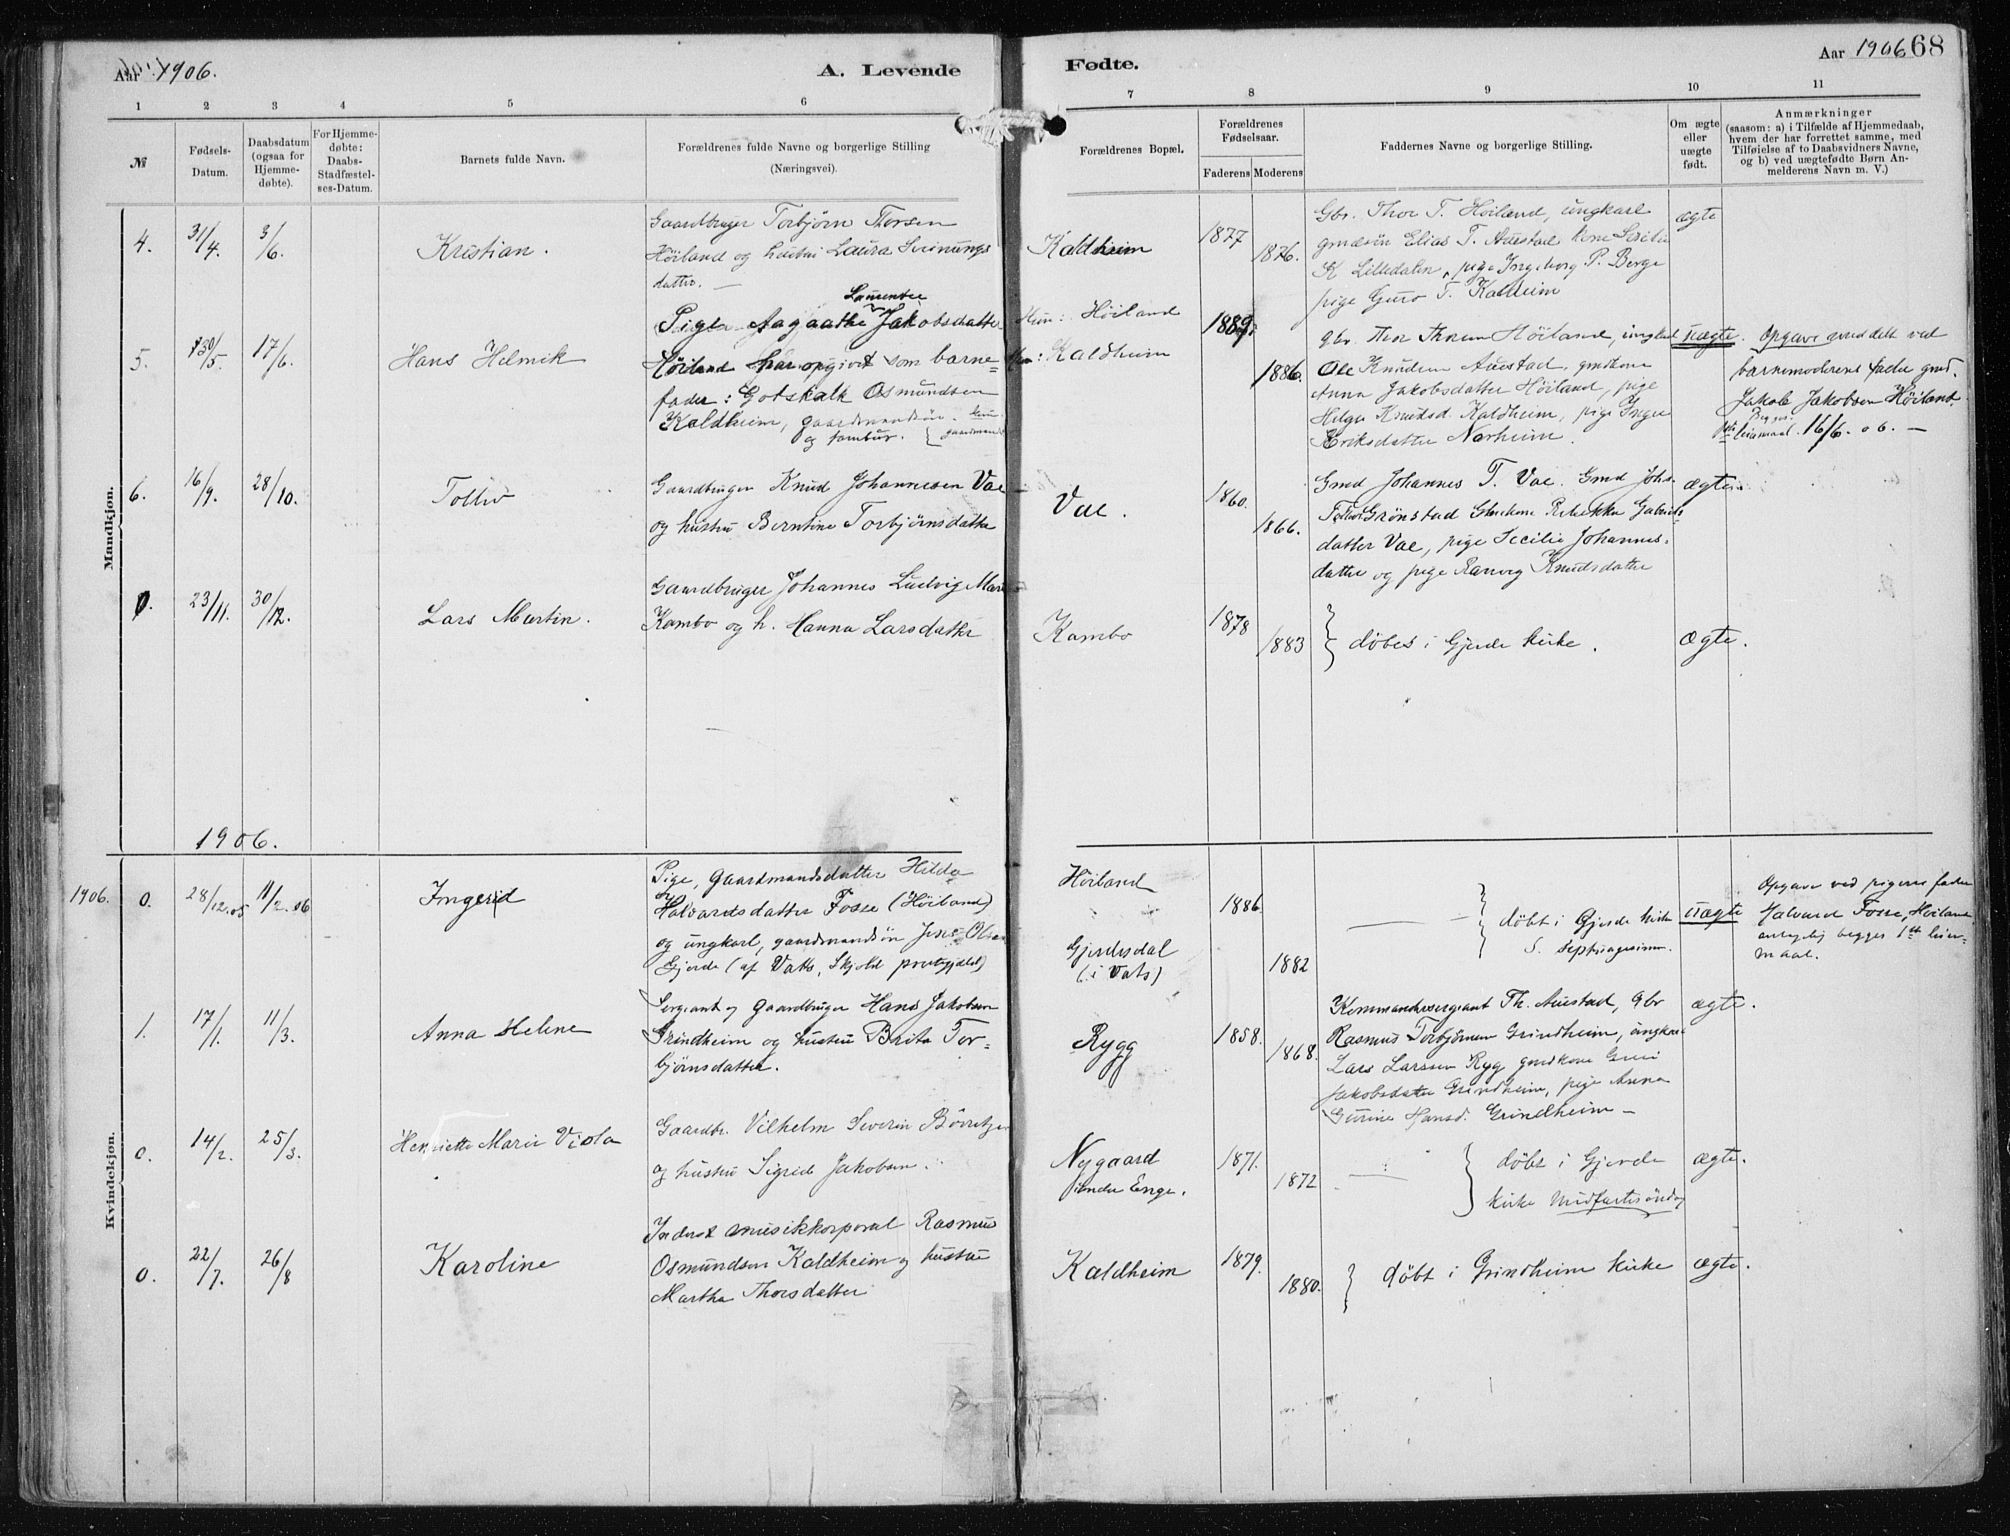 Aar 1906.
A. Levende
Fødte.
Aar 1906 68
1 2 3 4 5 6 7 8 9 10 11
№
Fødsels-
Datum.
Daabsdatum
(ogsaa for
Hjemme-
døbte).
For Hjemme-
døbte:
Daabs-
Stadfæstel-
ses-Datum.
Barnets fulde Navn.
Forældrenes fulde Navne og borgerlige Stilling
(Næringsvei).
Forældrenes Bopæl.
Forældrenes
Fødselsaar.
Faderens Moderens
Faddernes Navne og borgerlige Stilling.
Om ægte
eller
uægte
født.
Anmærkninger
(saasom: a) i Tilfælde af Hjemmedaab,
hvem der har forrettet samme, med
Tilføielse af to Daabsvidners Navne,
og b) ved uægtefødte Børn An-
melderens Navn m. V.)
Mandkjøn.
4. 31/4. 3/6. Kristian.
Gaardbruger Torbjørn Thorsen
Höiland og hustru Laura Svinungs
datter.
Kaldheim
1877
1876.
Gbr. Thor T. Höiland, ungkarl
gmdsøn Elias T. Austad
K Lilledalen, pige Ingeborg P. Berge
pige Guro T. Kalheim
ægte
5. 30/5. 17/6. Hans Helmik
Laurentse
Pige Aagaathe Jakobsdatter
Höiland har opgivet som barne=
fader: Gotskalk Osmundsen
Kaldheim, gaardmandsön
og tambur.
Hun: Höiland
Han: Kaldheim
1889.
1886.
gbr. Thor Thorsen Höiland, ungkarl
Ole Knudsen Austad, gmdkone
Anna Jakobsdatter Höiland, pige
Helga Knutsd. Kaldheim, pige Inger
Eriksdatter Nerheim.
uægte.
Opgave meddelt ved
barnemoderens fader gmd.
Jakob Jakobsen Höiland.
Begges
1ste leiermaal. 16/6. 06. —
6. 16/9. 28/10. Tolliv
Gaardbruger Knud Johannesen Vae
og hustru Berntine Torbjørnsdatter
Vae.
1860.
1866.
Gmd Johannes T. Vae. Gmd Johs.
Grönstad Rebekka Gabriels-
datter Vae, pige Secilie Johannes-
datter og pige Ranveig Knudsdatter
ægte.
0. 23/11. 30/12. Lars Martin.
Gaardbruger Johannes Ludvig
Kambo og h. Hanna Larsdatter
Kambo
1878
1883
döbes i Gjerde kirke.
ægte.
1906.
Kvindekjøn.
1906. 0. 28/12.05 11/2.06 Ingerid
Pige, gaardmandsdatter Hilda
Halvardsdatter Fosse (Höiland)
og ungkarl, gaardmandsön Jens Olsen
Gjerde (af Vats, Skjold prestegjæld)
Höiland
Gjerdesdal
(i Vats)
1886
1882
döbt i Gjerde kirke
S. Septuagesima.
uægte
Opgave ved pigens fader
Halvard Fosse, Höiland
begges 1ste leier-
maal.
1. 17/1. 11/3. Anna Helene
Sergeant og gaardbruger Hans Jakobsen
Grindheim og hustru Brita Tor-
björnsdatter.
Rygg
1858.
1868.
Kommandersergeant Th. Austad, gbr
Rasmus Torbjörnsen Grindheim, ungkarl
Lars Larssen Ryg gmdkone Guri
Jakobsdatter Grindheim, pige Anna
Gurine Hansd. Grindheim —
ægte.
0. 14/2. 25/3. Henriette Marie Viola
Gaardbr. Vilhelm Severin
og hustru Sigrid Jakobsen.
Nygaard
indre Enge.
1871.
1872
döbt i Gjerde
kirke Midfastesöndag
ægte.
0. 22/7. 26/8 Karoline
Inderst musikkorporal Rasmus
Osmundsen Kaldheim og hustru
Martha Thorsdatter
Kaldheim
1879.
1880.
döbt i Grindheim kirke
ægte.